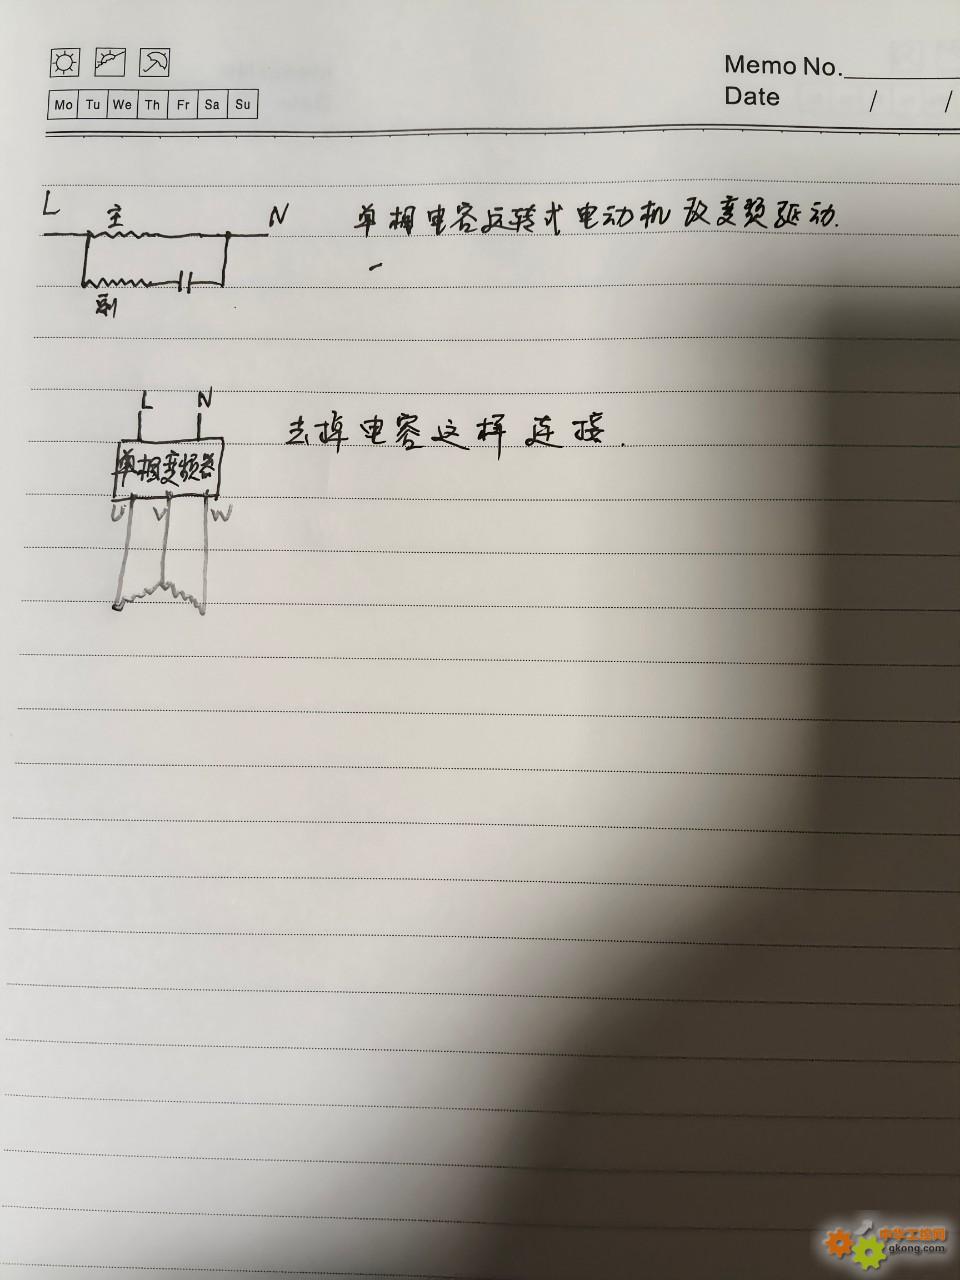 Memo No.
Mo Tu We Th Fr Sa Su
Date / /
L 主 N 单相电容运转式电动机改变频驱动.
副
L N
去掉电容这样连接.
单相变频器
U V W
中华工控网
gkong.com